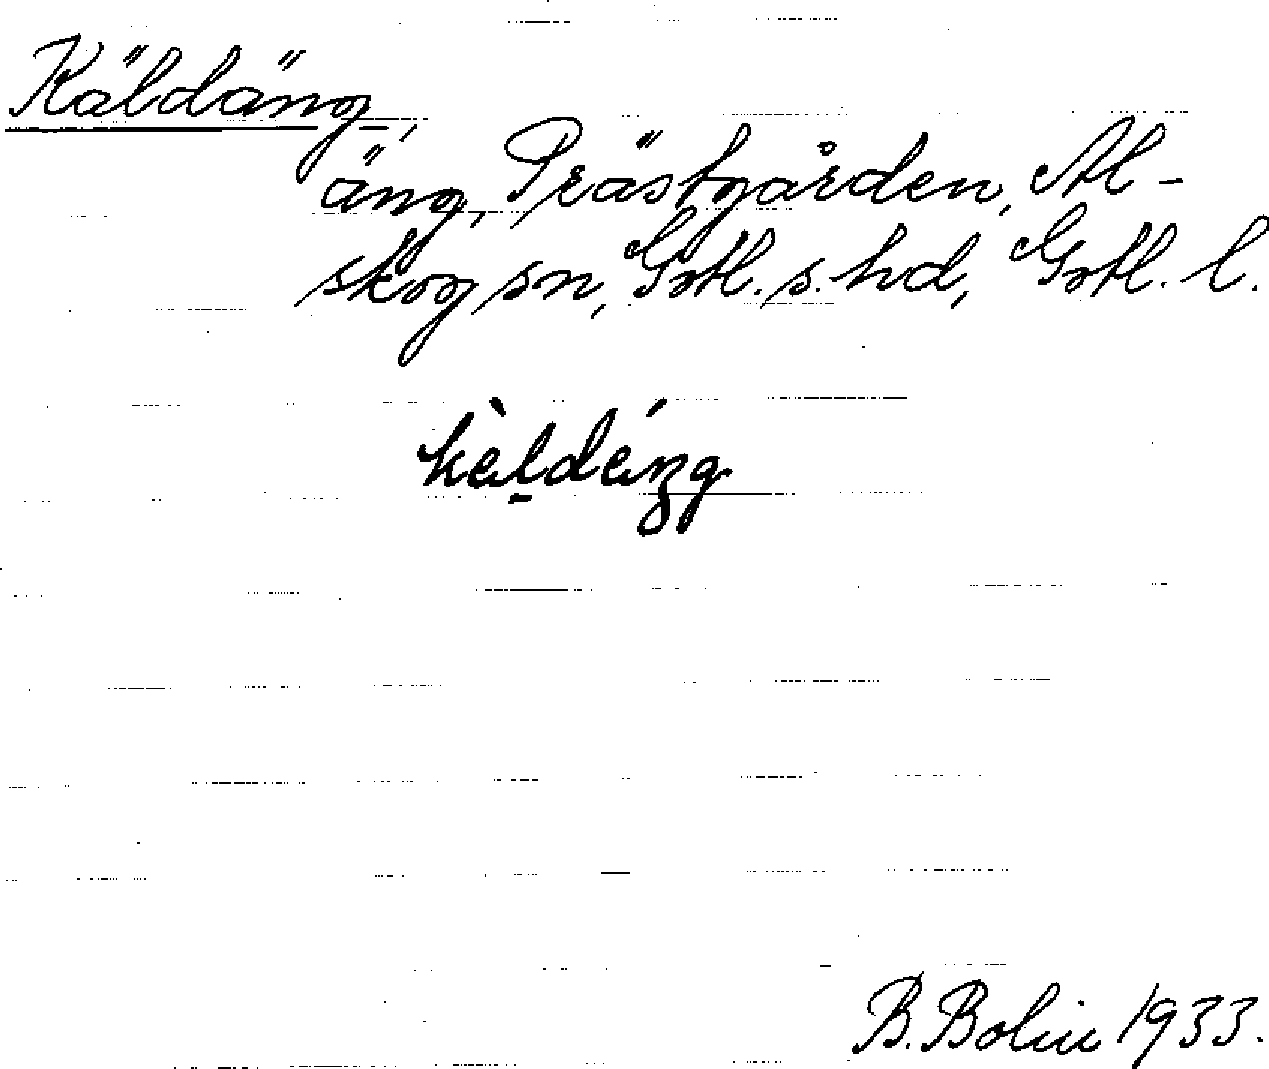 Käldäng,
äng, Prästgården, Al-
skog sn, Gotl. s. hd, Gotl. l.
B. Bolin 1933.